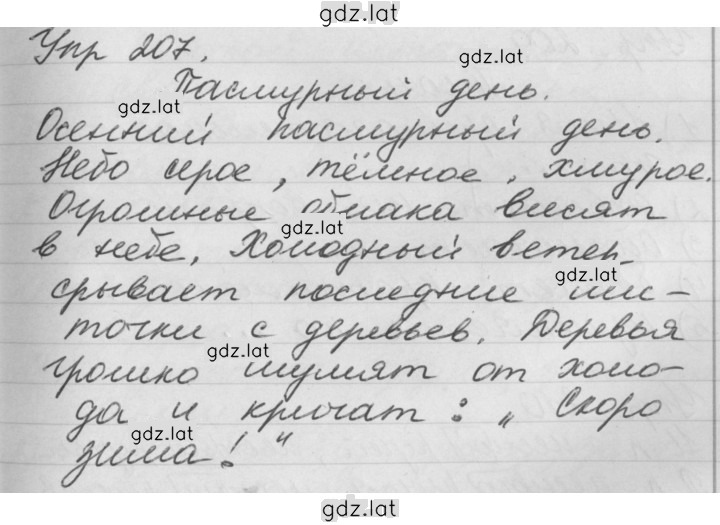 gdz.lat
Упр 207.
gdz.lat
Пасмурный день.
gdz.lat
Осенний пасмурный день.
Небо серое, тёмное, хмурое.
Огромные облака висят
gdz.lat
в небе. Холодный ветер
gdz.lat
срывает последние лис-
точки с деревьев. Деревья
gdz.lat
громко шумят от холо-
да и кричат: „Скоро
gdz.lat
зима!“
gdz.lat